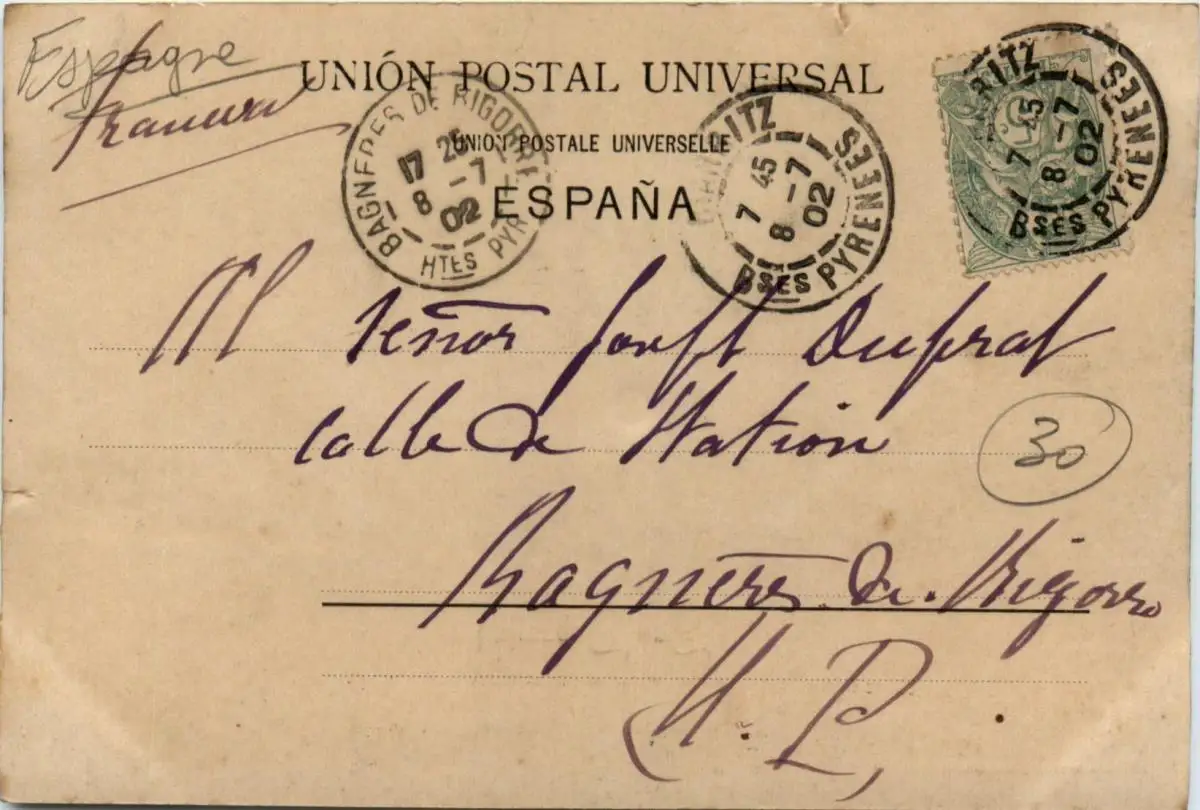 Espagne
UNIÓN POSTAL UNIVERSAL
UNION POSTALE UNIVERSELLE
ESPAÑA
BAGNERES DE BIGORRE
17 25
8 -7
02
HTES PYR
BIARRITZ
7 45
8 -7
02
BSES PYRENEES
BIARRITZ
7 45
8 -7
02
BSES PYRENEES
M Señor Joseph Duprat
calle de Station
30
Bagneres de Bigorre
H. P.